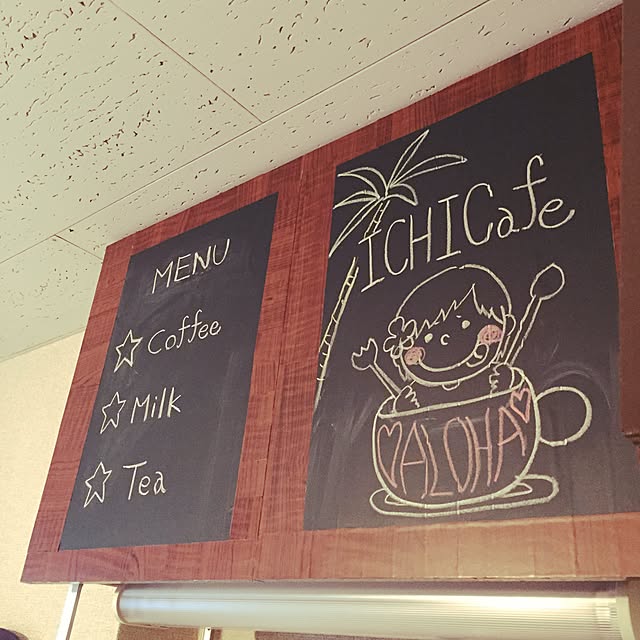 MENU
☆ Coffee
☆ Milk
☆ Tea
ICHICafe
♡ALOHA♡